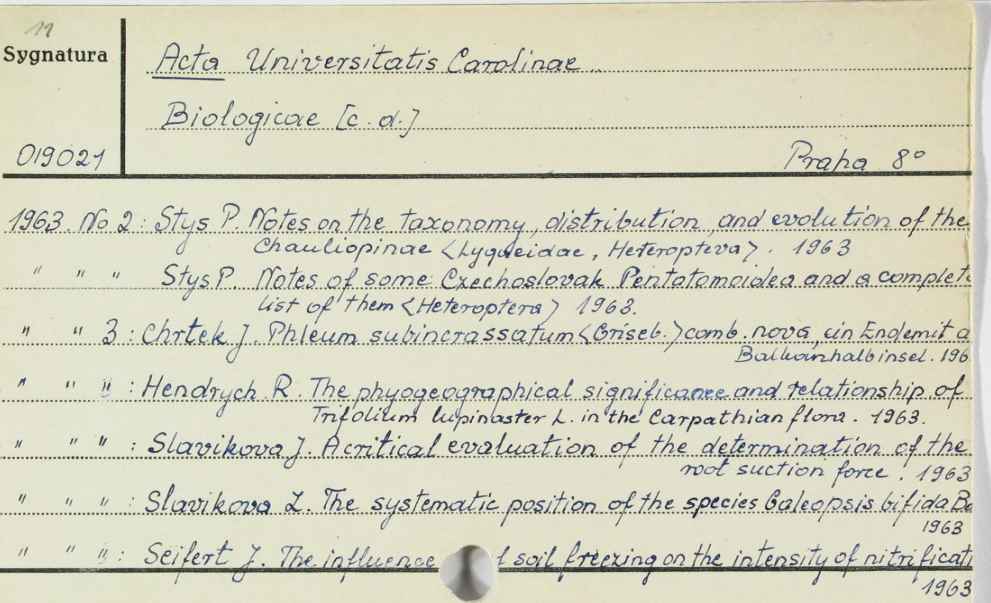 11
Sygnatura
Acta Universitatis Carolinae
Biologicae [c.d.]
019021
Praha 8°
1963. No 2: Stys P. Notes on the taxonomy, distribution and evolution of the
Chauliopinae <Lygaeidae, Heteroptera>. 1963
" " " Stys P. Notes of some Czechoslovak Pentatomoidea and a complete
list of them <Heteroptera> 1963.
" " 3: Chrtek J. Phleum subincrassatum <Griseb.> comb. nova, ein Endemit d
Balkanhalbinsel. 196
" " ": Hendrych R. The phyogeographical significance and relationship of
Trifolium lupinaster L. in the Carpathian flora. 1963.
" " " : Slavikova J. A critical evaluation of the determination of the
root suction force. 1963
" " " : Slavikova Z. The systematic position of the species Galeopsis bifida Bo
1963
" " ": Seifert J. The influence soil freezing on the intensity of nitrificati
1963